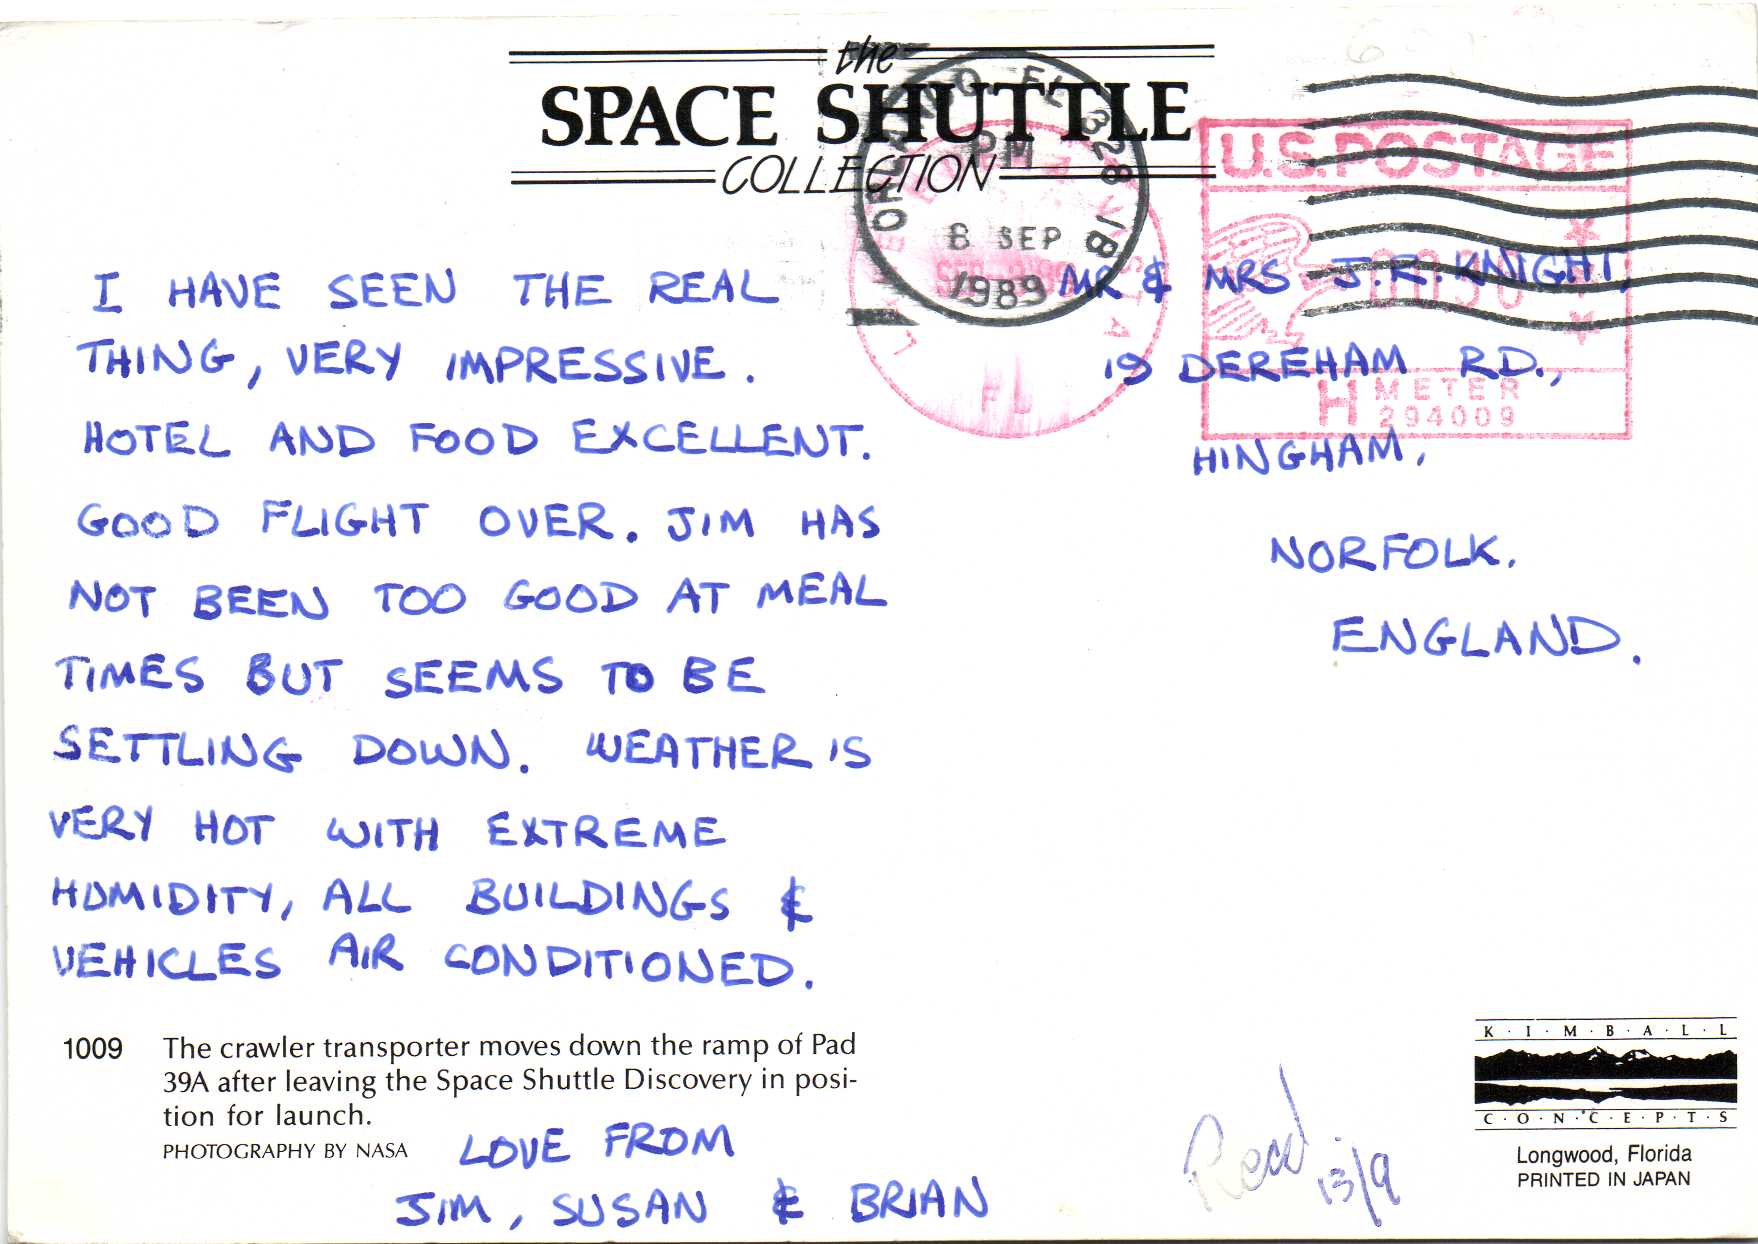 the
SPACE SHUTTLE
COLLECTION
ORLANDO, FL 328
PM
8 SEP
1989
U.S. POSTAGE
FL
H METER
294009
I HAVE SEEN THE REAL
THING, VERY IMPRESSIVE.
HOTEL AND FOOD EXCELLENT.
GOOD FLIGHT OVER. JIM HAS
NOT BEEN TOO GOOD AT MEAL
TIMES BUT SEEMS TO BE
SETTLING DOWN. WEATHER IS
VERY HOT WITH EXTREME
HUMIDITY, ALL BUILDINGS &
VEHICLES AIR CONDITIONED.
LOVE FROM
JIM, SUSAN & BRIAN
MR & MRS J.R. KNIGHT,
19 DEREHAM RD.,
HINGHAM,
NORFOLK.
ENGLAND.
1009 The crawler transporter moves down the ramp of Pad
39A after leaving the Space Shuttle Discovery in posi-
tion for launch.
PHOTOGRAPHY BY NASA
Recd
13/9
K·I·M·B·A·L·L
C·O·N·C·E·P·T·S
Longwood, Florida
PRINTED IN JAPAN